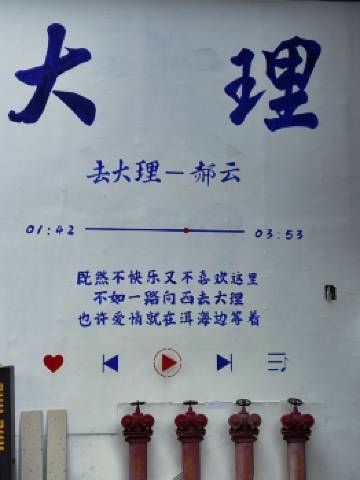 大理
去大理－郝云
01:42 03:53
既然不快乐又不喜欢这里
不如一路向西去大理
也许爱情就在洱海边等着